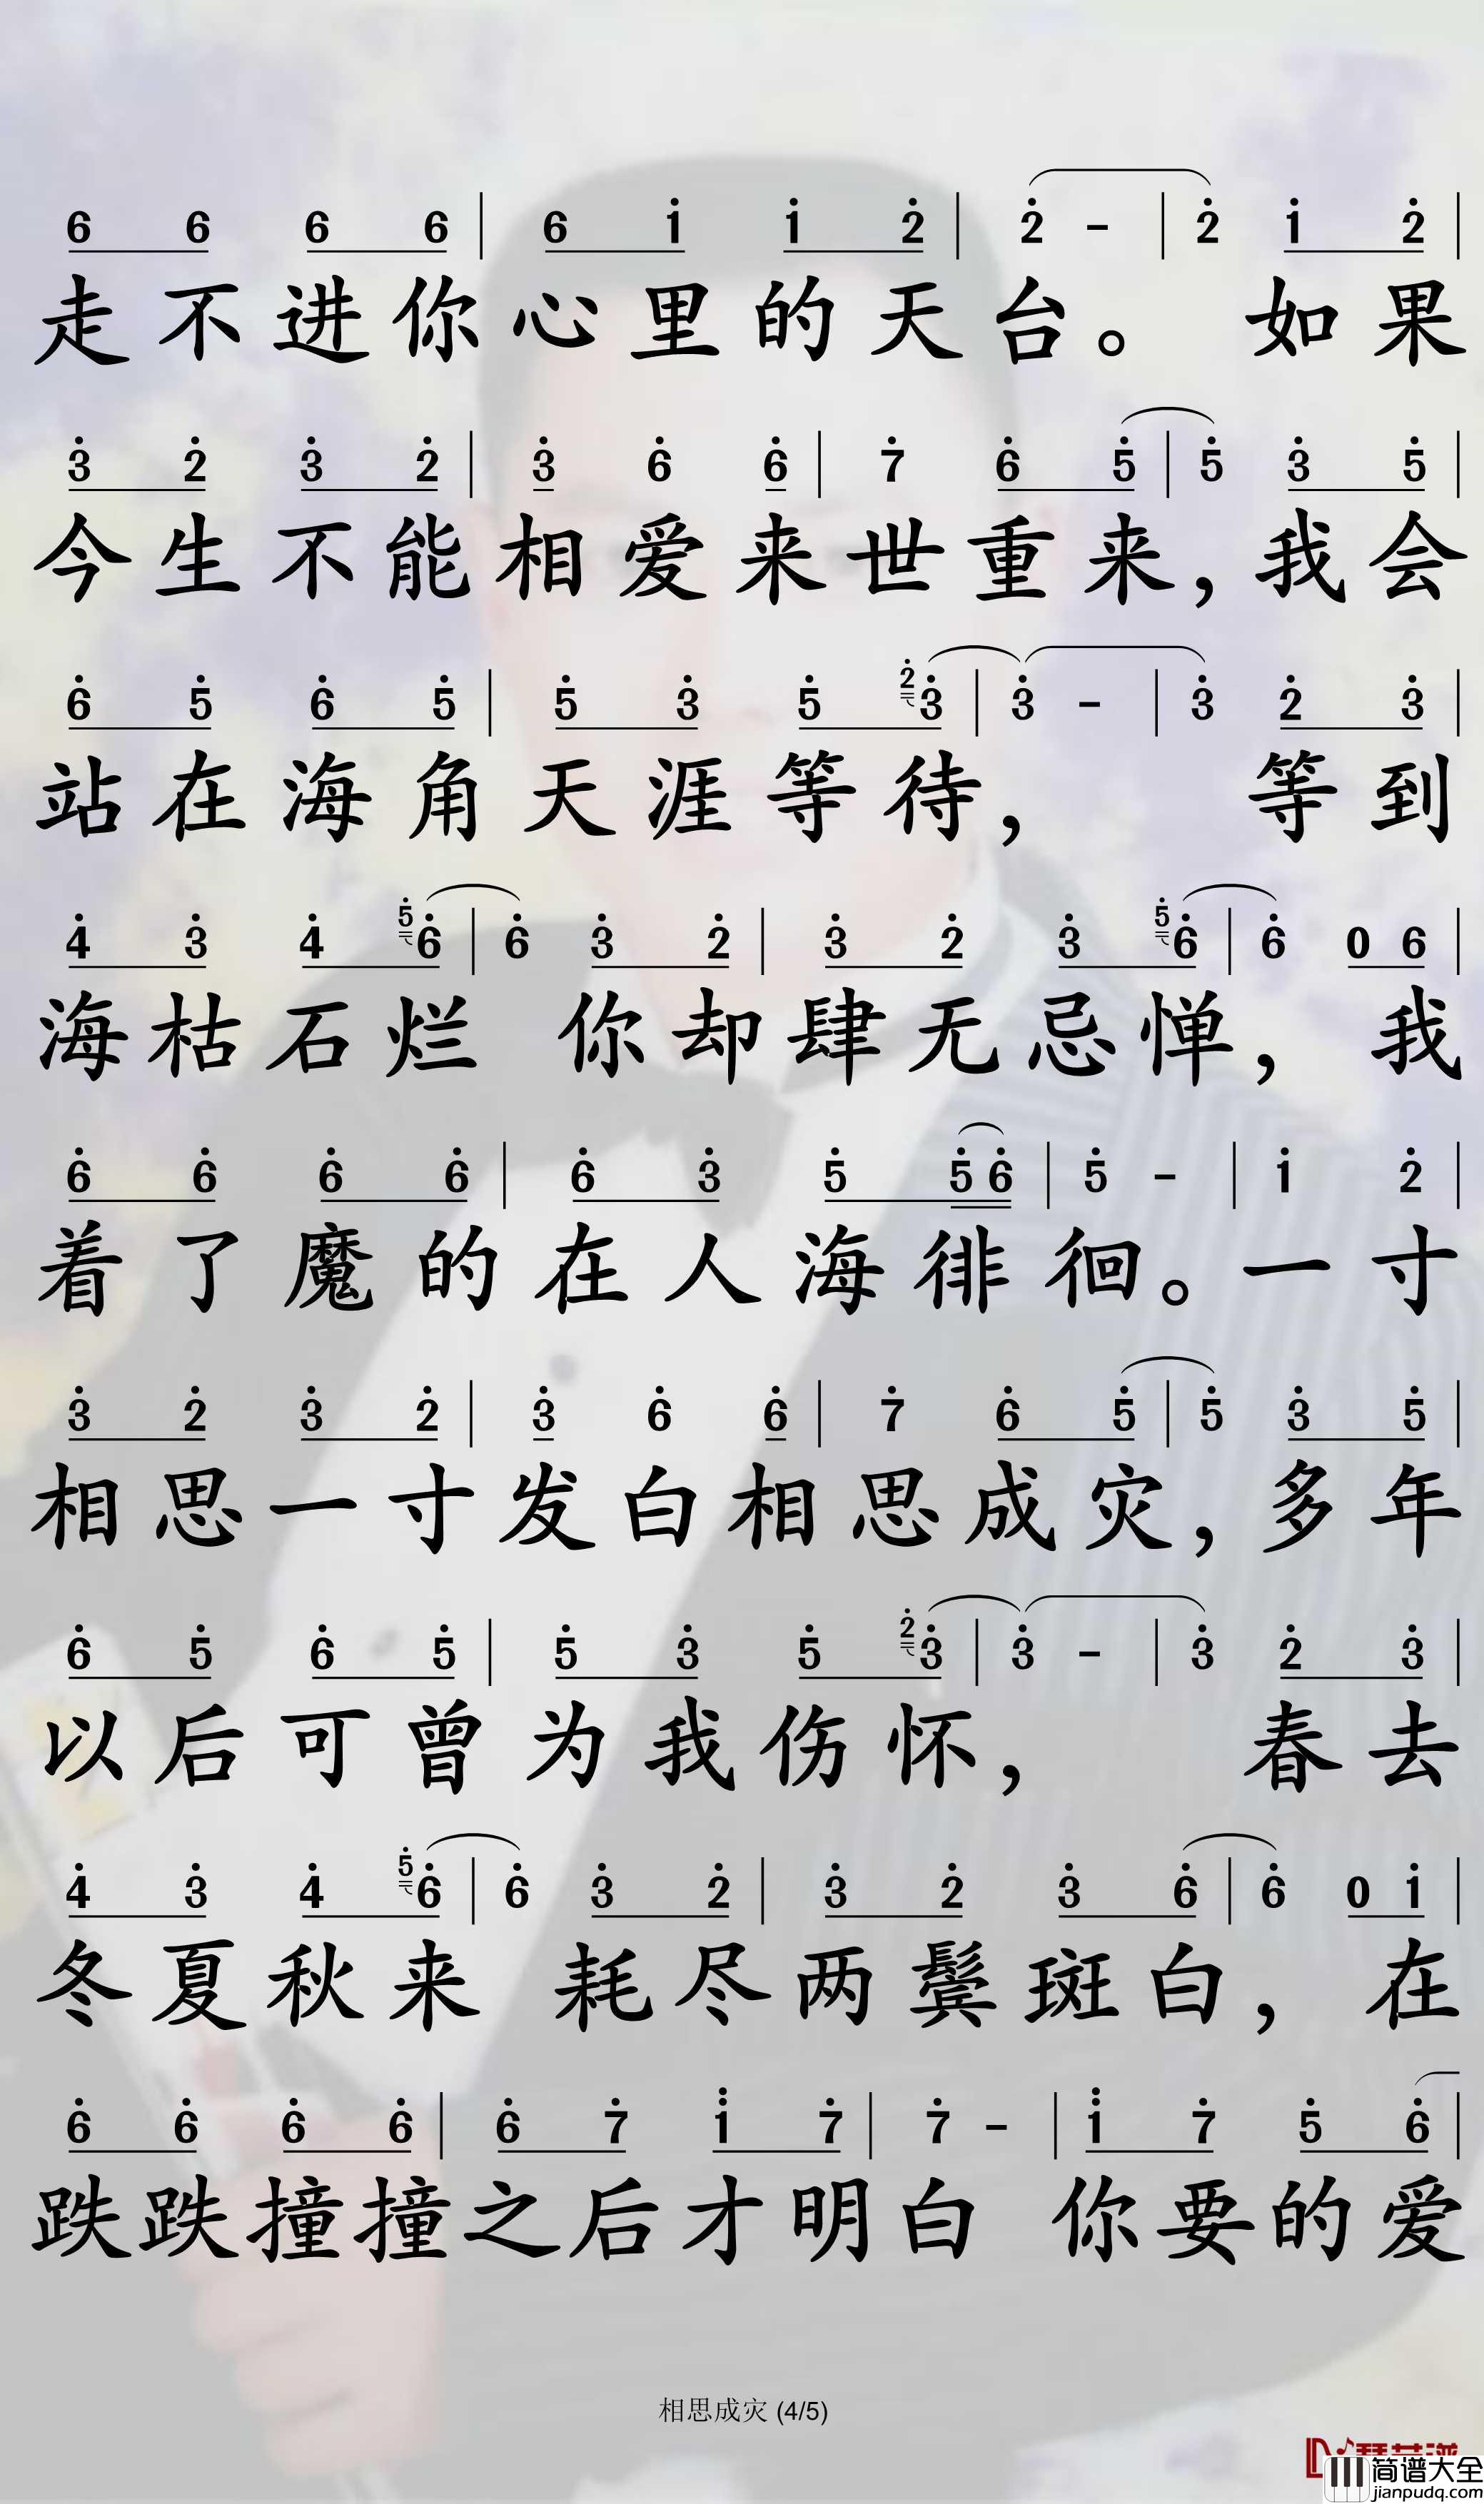 6 6 6 6 | 6 1 1 2 | 2 - | 2 1 2 |
走不进你心里的天台。如果
3 2 3 2 | 3 6 6 | 7 6 5 | 5 3 5 |
今生不能相爱来世重来，我会
6 5 6 5 | 5 3 5 2 3 | 3 - | 3 2 3 |
站在海角天涯等待，等到
4 3 4 5 6 | 6 3 2 | 3 2 3 5 6 | 6 0 6 |
海枯石烂 你却肆无忌惮，我
6 6 6 6 | 6 3 5 5 6 | 5 - | 1 2 |
着了魔的在人海徘徊。一寸
3 2 3 2 | 3 6 6 | 7 6 5 | 5 3 5 |
相思一寸发白相思成灾，多年
6 5 6 5 | 5 3 5 2 3 | 3 - | 3 2 3 |
以后可曾为我伤怀，春去
4 3 4 5 6 | 6 3 2 | 3 2 3 6 | 6 0 1 |
冬夏秋来 耗尽两鬓斑白，在
6 6 6 6 | 6 7 1 7 | 7 - | 1 7 5 6 |
跌跌撞撞之后才明白 你要的爱
相思成灾 (4/5)
简谱大全
jianpudq.com